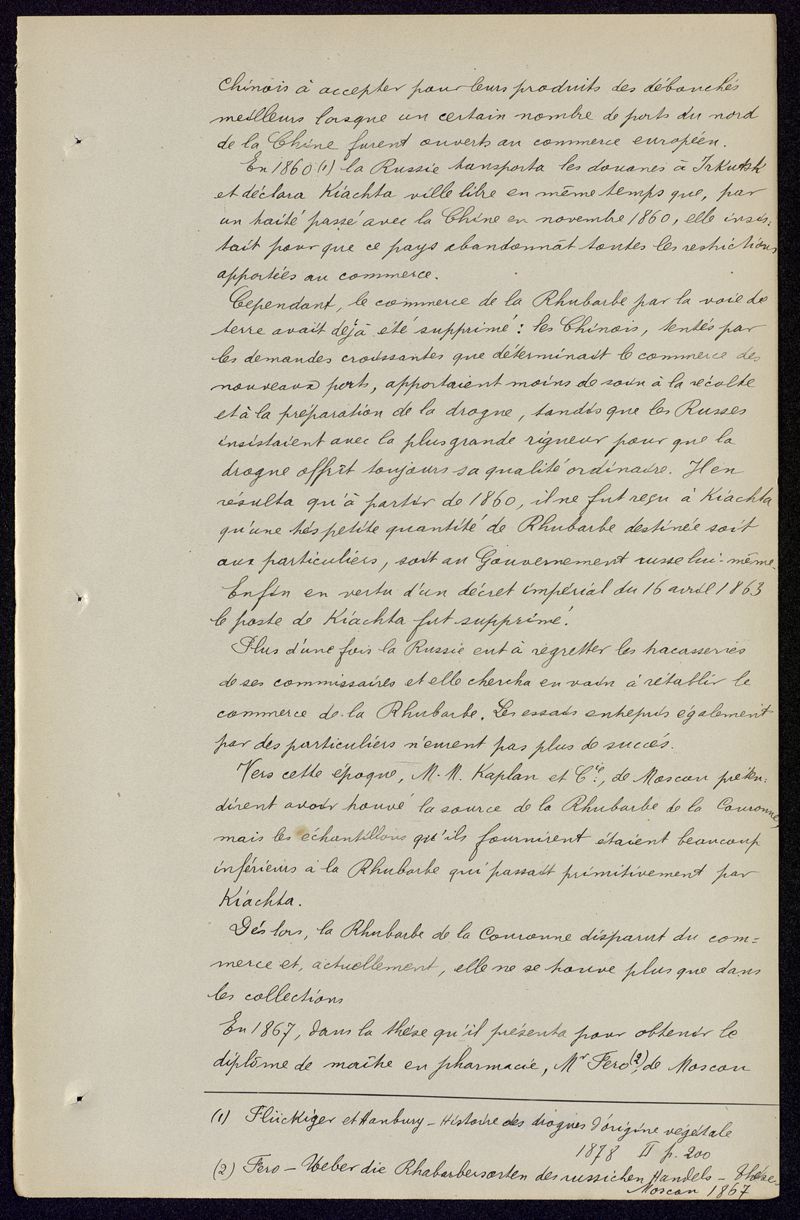 Chinois à accepter pour leurs produits des débouchés
meilleurs lorsque un certain nombre de ports du nord
de la Chine furent ouverts au commerce européen.
En 1860 (1) la Russie transporta les douanes à Irkutsk
et déclara Kiachta ville libre en même temps que, par
un traité passé avec la Chine en novembre 1860, elle insis-
tait pour que ce pays abandonnât toutes les restrictions
apportées au commerce.
Cependant, le commerce de la Rhubarbe par la voie de
terre avait déjà été supprimé : les Chinois, tentés par
les demandes croissantes que déterminait le commerce des
nouveaux ports, apportaient moins de soin à la récolte
et à la préparation de la drogue, tandis que les Russes
insistaient avec la plus grande rigueur pour que la
drogue offrît toujours sa qualité ordinaire. Il en
résulta qu'à partir de 1860, il ne fut reçu à Kiachta
qu'une très petite quantité de Rhubarbe destinée soit
aux particuliers, soit au Gouvernement russe lui-même.
Enfin en vertu d'un décret impérial du 16 avril 1863
le poste de Kiachta fut supprimé.
Plus d'une fois la Russie eut à regretter les tracasseries
de ses commissaires et elle chercha en vain à rétablir le
commerce de la Rhubarbe. Les essais entrepris également
par des particuliers n'eurent pas plus de succés.
Vers cette époque, M. M. Kaplan et Cie, de Moscou préten-
dirent avoir trouvé la source de la Rhubarbe de la Couronne,
mais les échantillons qu'ils fournirent étaient beaucoup
inférieurs à la Rhubarbe qui passait primitivement par
Kiachta.
Dés lors, la Rhubarbe de la Couronne disparut du com=
merce et, actuellement, elle ne se trouve plus que dans
les collections
En 1867, dans la thése qu'il présenta pour obtenir le
diplôme de maître en pharmacie, Mr Fero (2), de Moscou
(1) Flückiger et Hanbury - Histoire des drogues d'origine végétale
1878 II p. 200
(2) Fero - Ueber die Rhabarbersorten des russichen Handels - Thése -
Moscou 1867